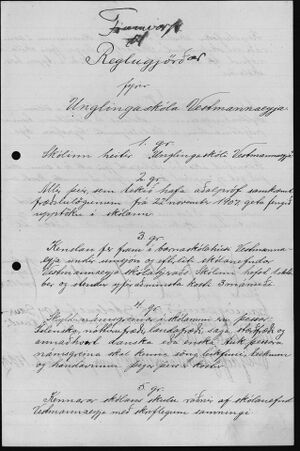 Frumvarp
til
Reglugjörðar
fyrir
Unglingaskóla Vestmannaeyja
1. gr.
Skólinn heitir Unglingaskóli Vestmannaeyja
2. gr.
Allir þeir, sem tekið hafa aðalpróf samkvæmt
fræðslulögunum frá 22 november 1907 geta fengið
upptöku í skólann
3. gr.
Kenslan fer fram í barnaskólahúsi Vestmanna-
eyja undir umsjón og eftirliti skólanefndar
Vestmannaeyja skólahjeraðs. Skólinn hefst 1. október
ber og stendur yfir að minsta kosti 3 mánuði
4. gr.
Skyldunámsgreinar í skólanum eru þessar:
Íslenska, náttúrufræði, landafræði, saga, reikningur og
annaðhvort danska eða enska. Auk þessara
námsgreina skal kenna söng, leikfimi, teiknun
og handavinnu þegar þess er kostur
5. gr.
Kennarar skólans skulu ráðnir af skólanefnd
Vestmannaeyja með skriflegum samningi